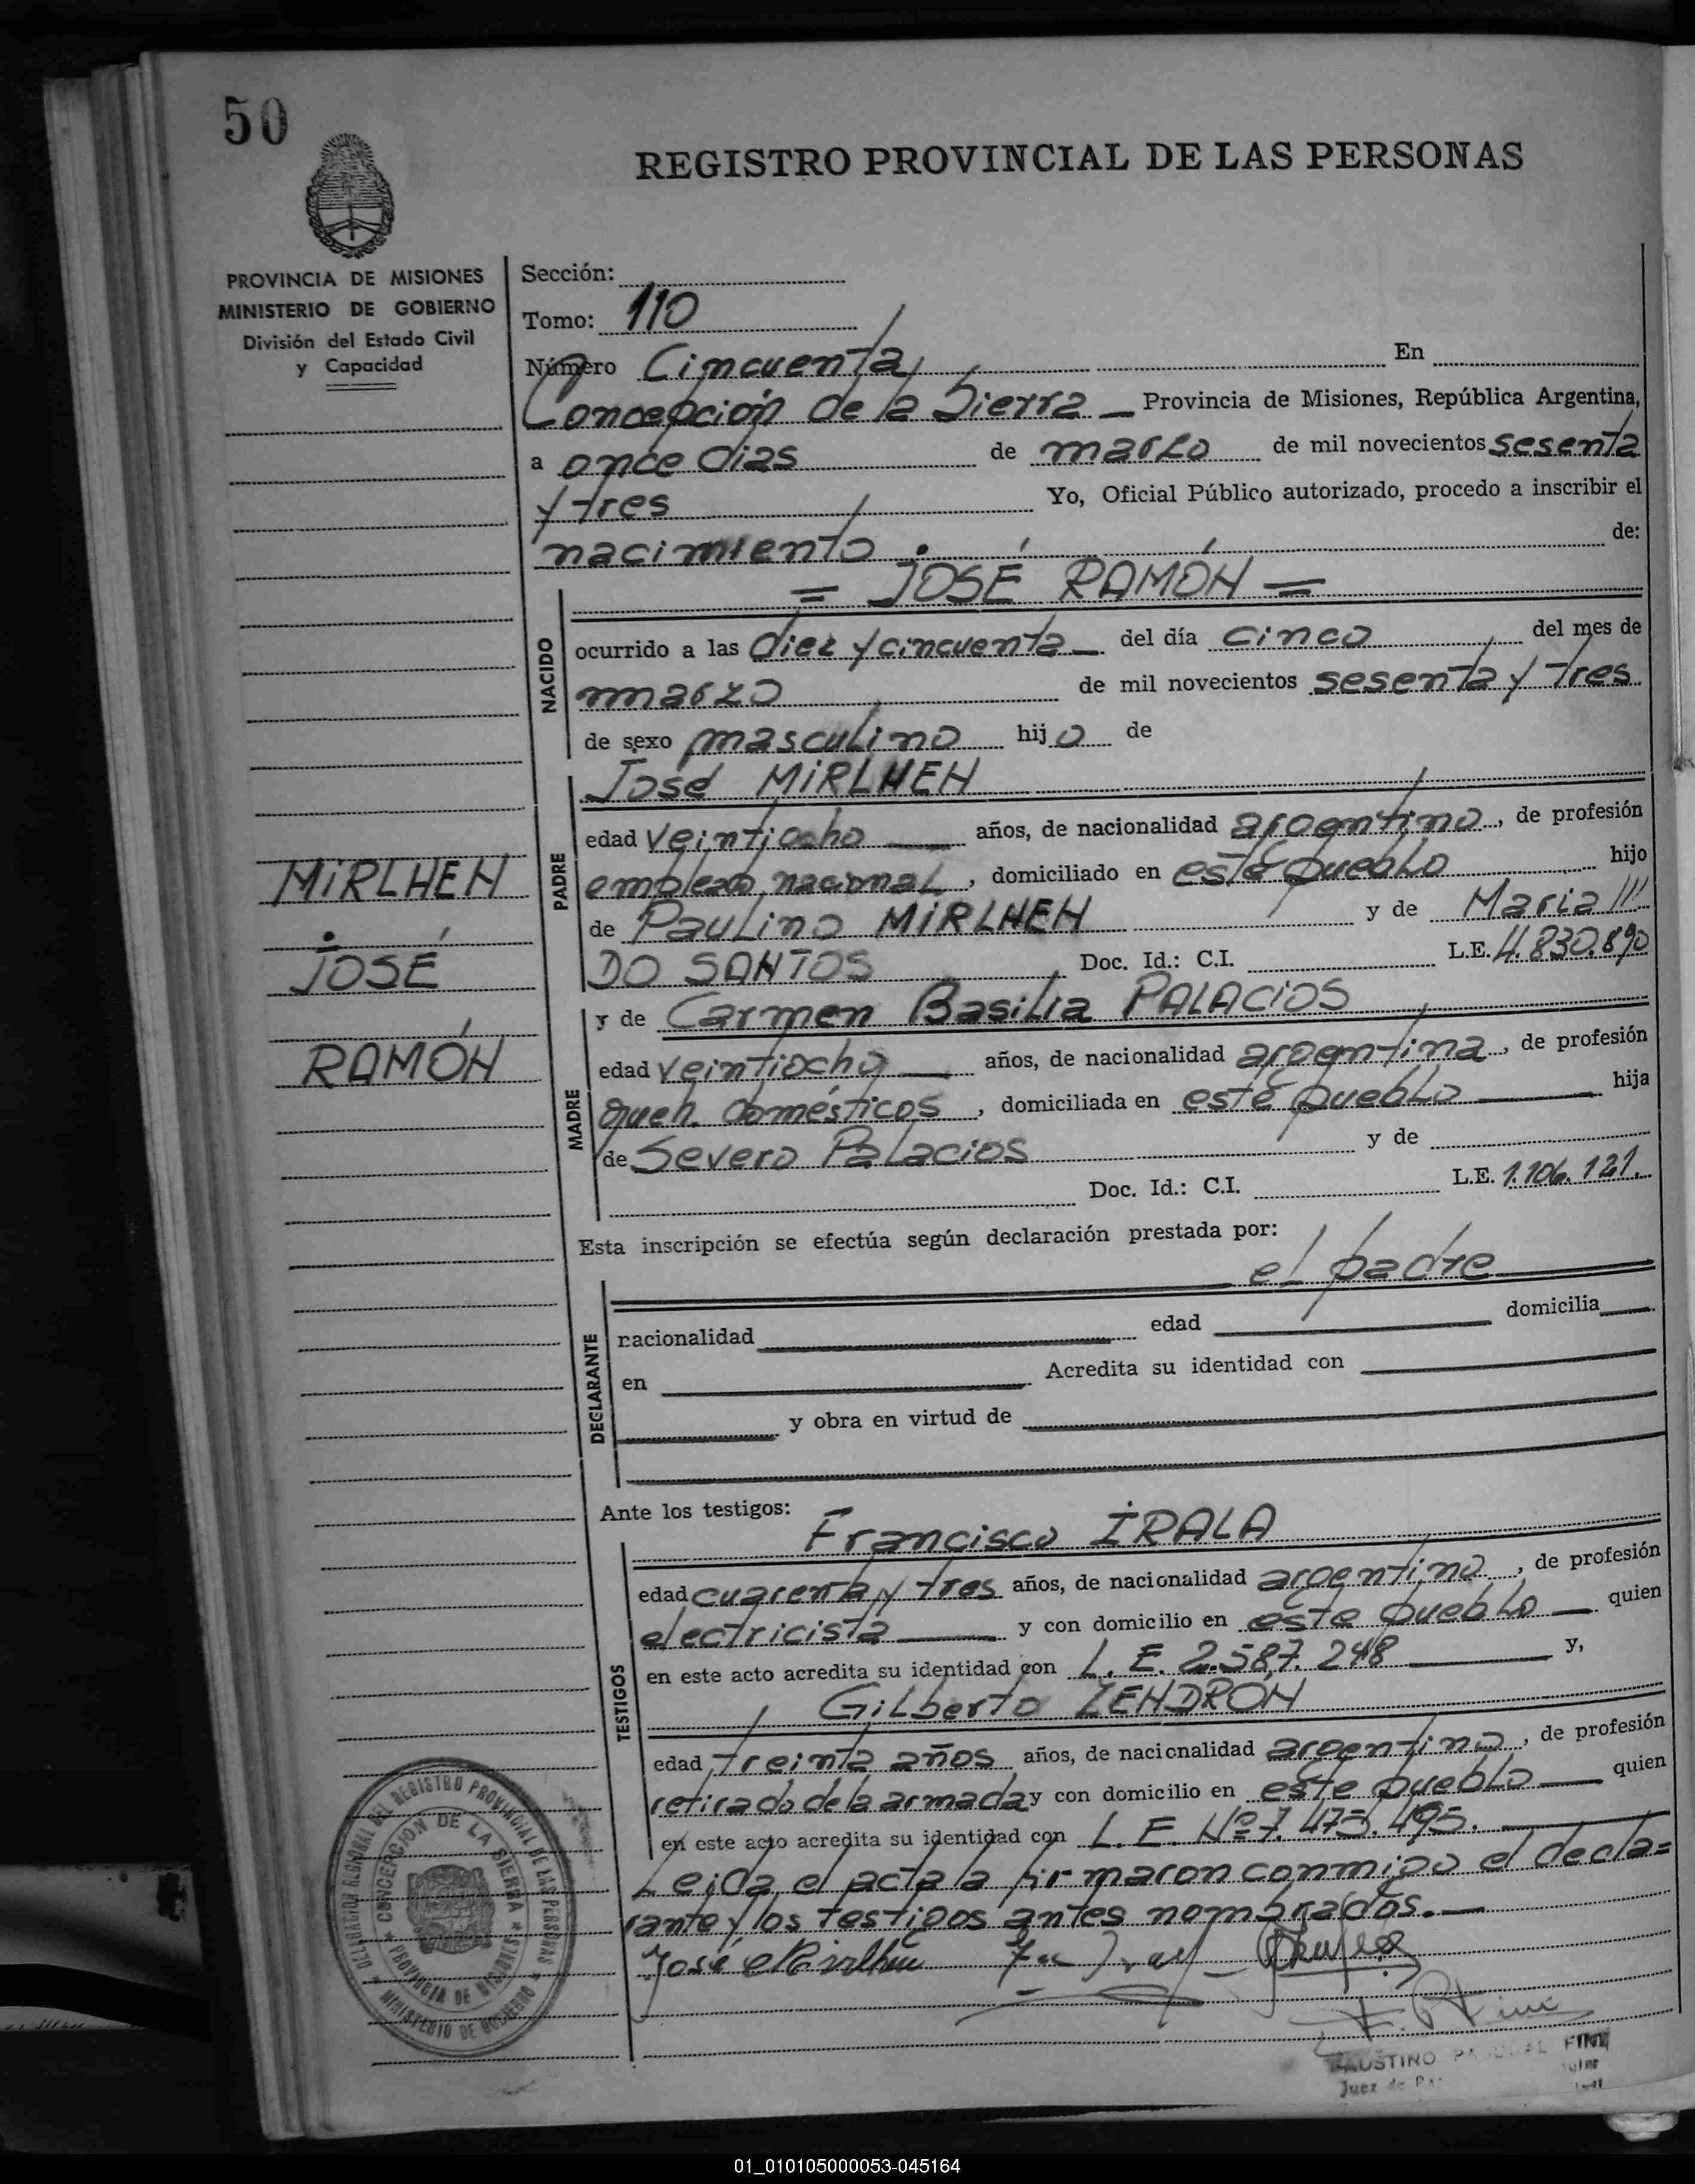 50
REGISTRO PROVINCIAL DE LAS PERSONAS
PROVINCIA DE MISIONES
MINISTERIO DE GOBIERNO
División del Estado Civil
y Capacidad
Sección:
Tomo: 110
Número Cincuenta En
Concepción de la Sierra Provincia de Misiones, República Argentina,
a once dias de marzo de mil novecientos sesenta
y tres Yo, Oficial Público autorizado, procedo a inscribir el
nacimiento de:
= JOSÉ RAMÓN =
NACIDO
ocurrido a las diez y cincuenta del día cinco del mes de
marzo de mil novecientos sesenta y tres
de sexo masculino hijo de
José MIRLHEN
PADRE
edad veintiocho años, de nacionalidad argentino, de profesión
empleado nacional, domiciliado en este pueblo hijo
de Paulino MIRLHEN y de Maria
DO SANTOS Doc. Id.: C.I. L.E. 4.830.890
MIRLHEN
JOSÉ
RAMÓN
y de Carmen Basilia PALACIOS
MADRE
edad veintiocho años, de nacionalidad argentina, de profesión
queh. domésticos, domiciliada en este pueblo hija
de Severo Palacios y de
Doc. Id.: C.I. L.E. 1.106.121.
Esta inscripción se efectúa según declaración prestada por:
el padre
DECLARANTE
nacionalidad edad domicilia
en Acredita su identidad con
y obra en virtud de
Ante los testigos:
Francisco IRALA
TESTIGOS
edad cuarenta y tres años, de nacionalidad argentino, de profesión
electricista y con domicilio en este pueblo quien
en este acto acredita su identidad con L. E. 2.587.248 y,
Gilberto ZENDRON
edad treinta años años, de nacionalidad argentino, de profesión
retirado de la armada y con domicilio en este pueblo quien
en este acto acredita su identidad con L. E. Nº 7.475.495.
Leida el acta la firmaron conmigo el decla=
rante y los testigos antes nombrados.
José Mirlhen
DELEGACION REGIONAL DEL REGISTRO PROVINCIAL DE LAS PERSONAS
MINISTERIO DE GOBIERNO
CONCEPCION DE LA SIERRA
PROVINCIA DE MISIONES
FAUSTINO
Juez de
01_010105000053-045164